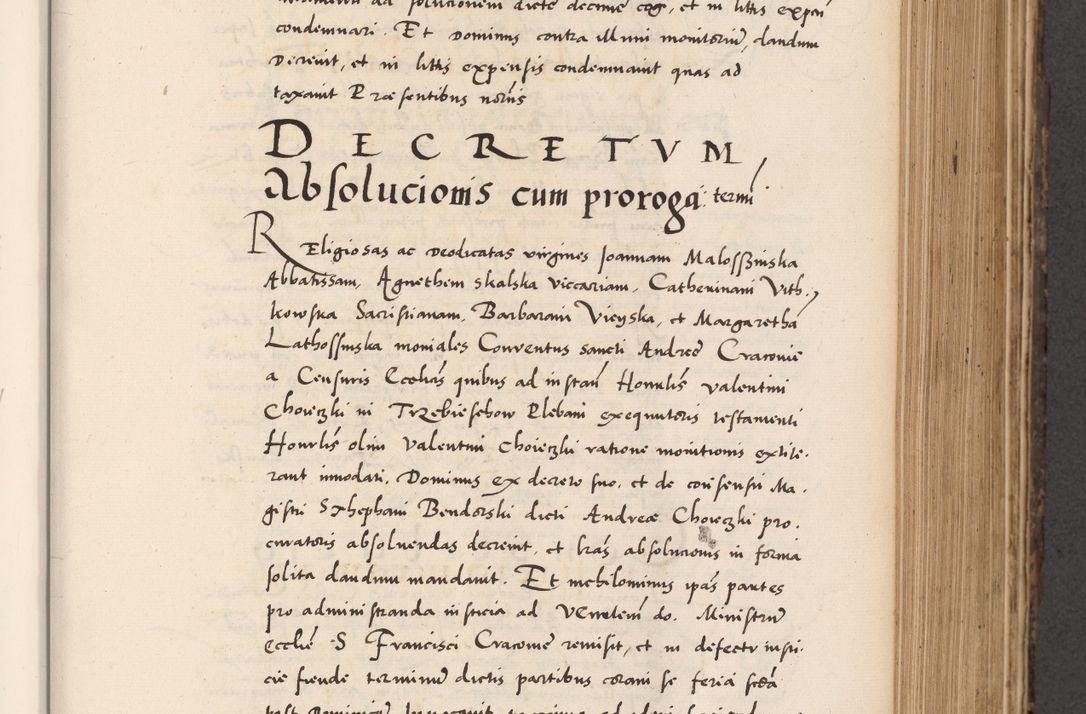 ad solucionem dicte decime cog, et in littis expen
condemnari. Et Dominus contra illum monitoriu, dandum
Decreuit, et in littis expensis condemnauit quas ad
taxauit Præsentibus noriis
DECRETVM
Absolucionis cum proroga: termi
REligiosas ac Deodicatas virgines Joannam Malosszinska
Abbatissam, Agnethem skalska viccariam, Catherinam Vith,
kowska Sacristianam, Barbaram Vieyska, et Margaretha
Lathossinska moniales Conuentus sancti Andreæ Cracouie
a Censuris Eccliās quibus ad instan Honulis valentini
Choieczki in Trzebiesehow Plebani exequutoris testamenti
Honulis olim Valentini Choieczki ratione monitionis extite-
rant innodati. Dominus ex decreto suo, et de consensu Ma-
gistri Sthephani Bendorski dicti Andreæ Choieczki pro-
curatoris absoluendas decreuit, et lrās absolucionis in forma
solita dandum mandauit. Et nichilominus ipās partes
pro administranda iusticia ad Venrlem do. Ministru
ecclie S Francisci Cracouie remisit, et in defectu iusti-
cie fiende terminu dictis partibus coram se feria scda
post Dominica Inuocauit